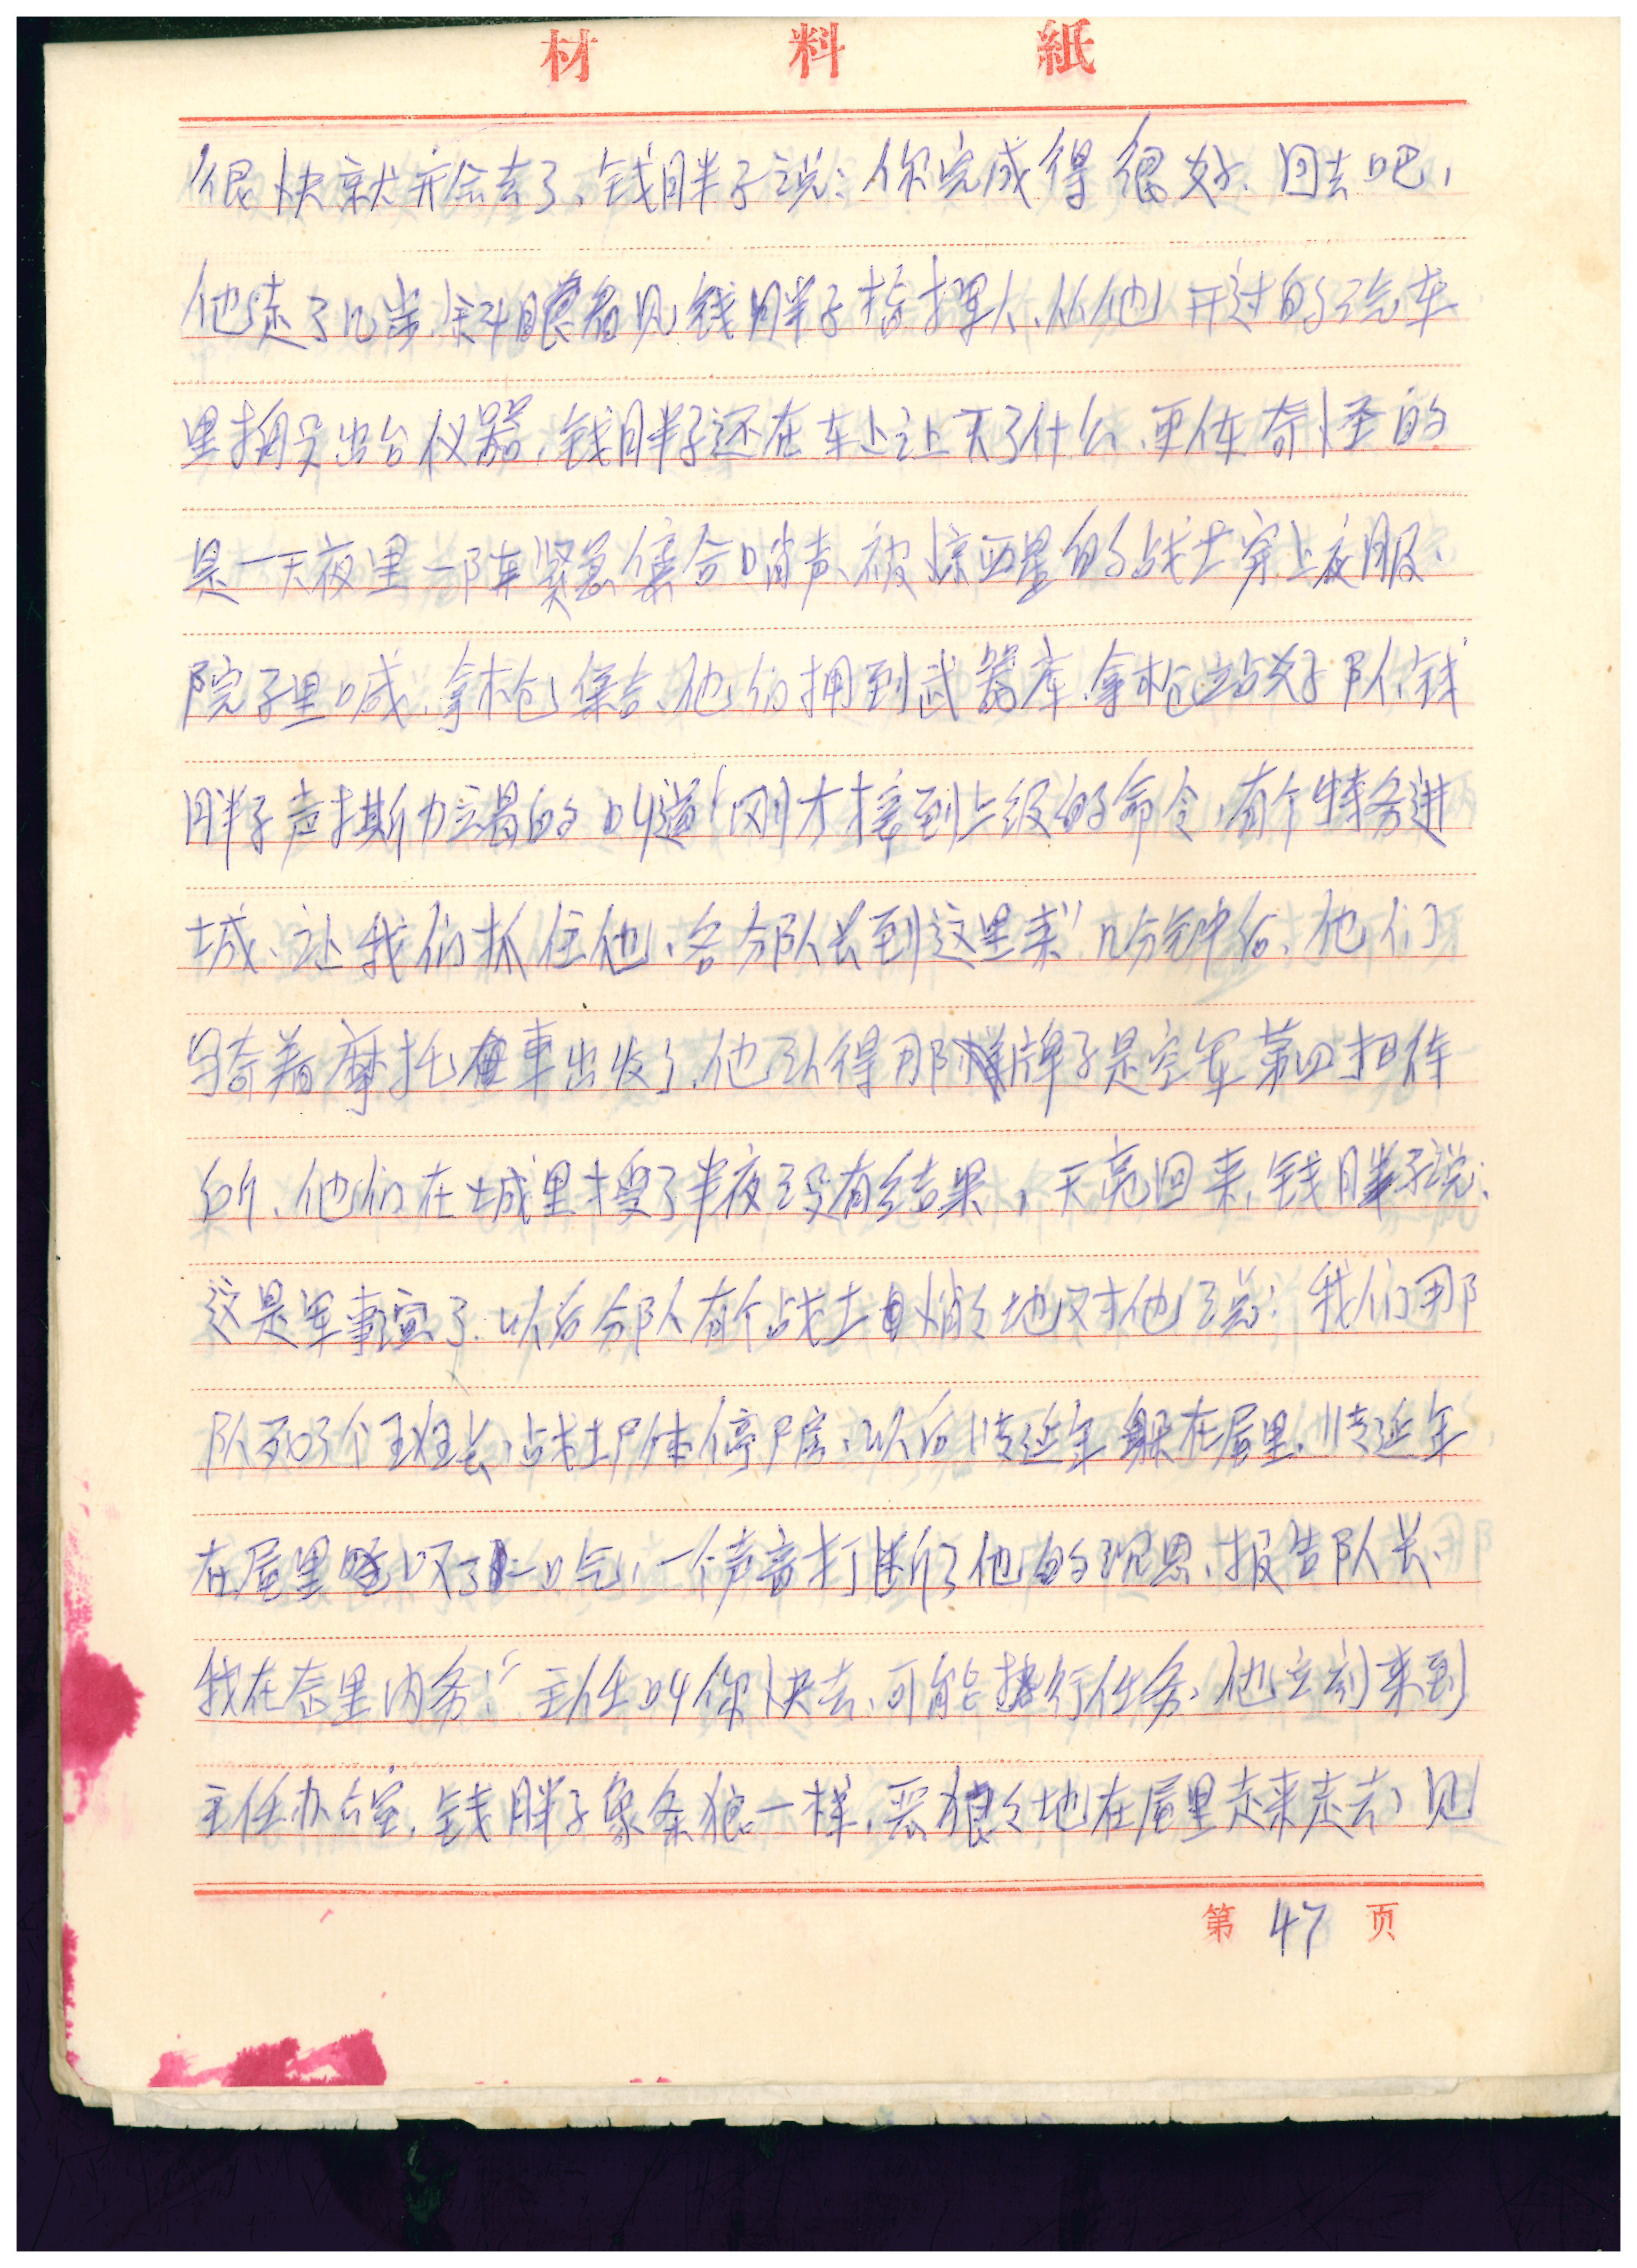 材料紙
很快就开会去了、钱胖子说：你完成得很好、回去吧，
他走了几步、斜眼看见钱胖子指挥人、从他开过的汽车
里搬出台仪器，钱胖子还在车上让天了什么、更使奇怪的
是一天夜里一阵紧急集合哨声、被惊醒的战士穿上衣服、
院子里喊、拿枪集合、他们拥到武器库、拿枪站好队、钱
胖子声撕力竭的叫道“刚才接到上级的命令，有个特务进
城、让我们抓住他、各分队长到这里来”几分钟后、他们
骑着摩托車出发了、他认得那牌子是空军第四招待
所、他们在城里搜了半夜没有结果，天亮回来、钱胖子说：
这是军事演了、以后分队有个战士悄々地对他说：我们那
队死了个班长，战士尸体停尸房、以后陆延年躲在屋里、陆延年
在屋里叹了一口气，一个声音打断了他的沉思、报告队长、
我在态里内务！“主任叫你快去、可能执行任务、他立刻来到
主任办公室、钱胖子象条狼一样、恶狠々地在屋里走来走去，见
第47页